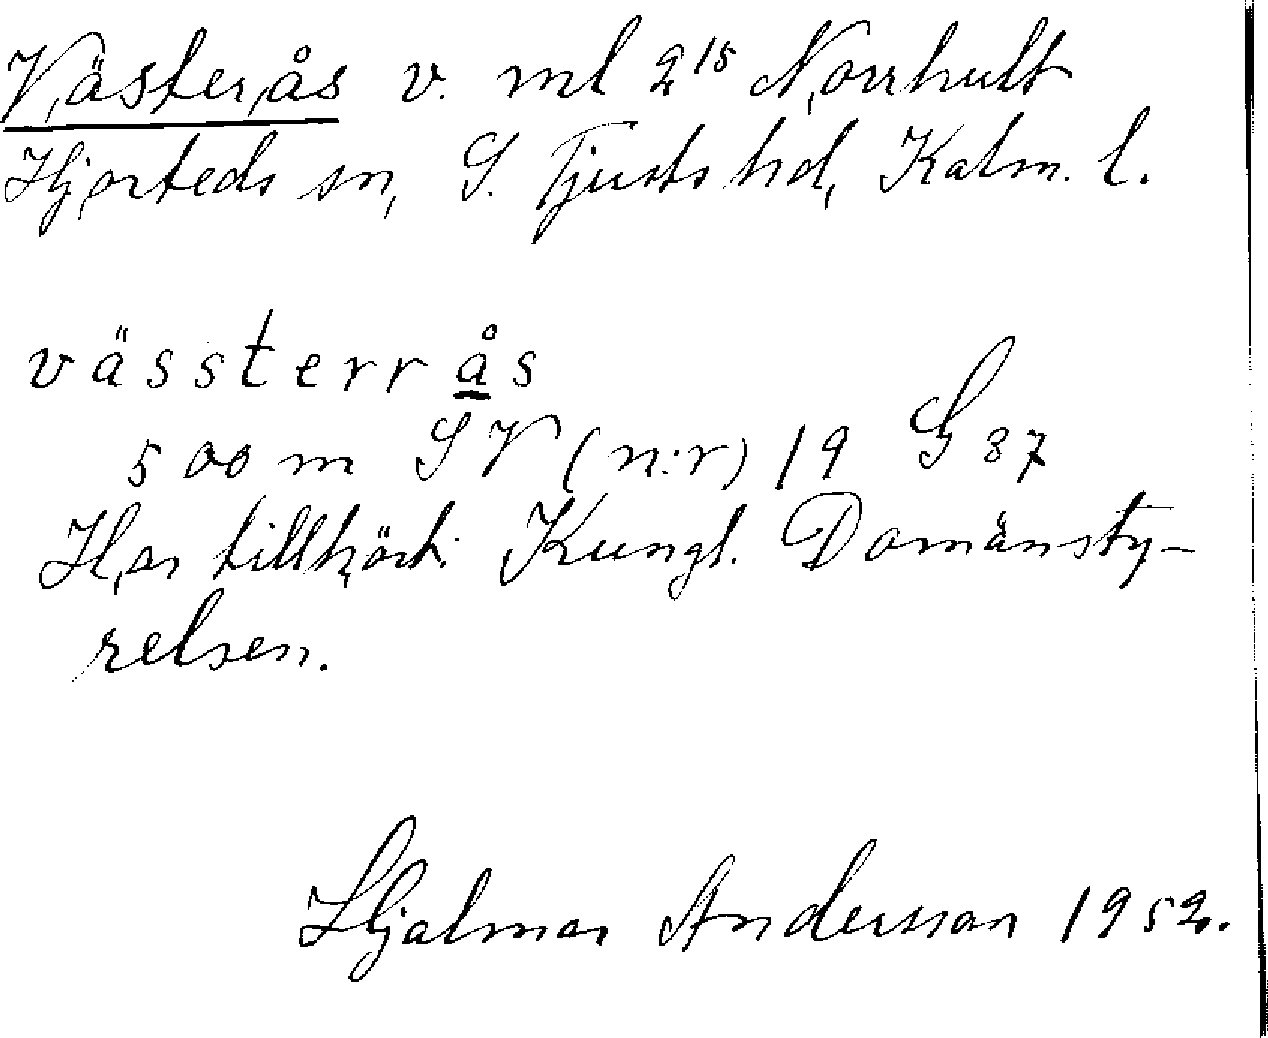 Västerås v. ml 2¹⁵ Norrhult
Hjorteds sn, S. Tjusts hd, Kalm. l.
vässterrås
500 m SV (n:r) 19 G 37
Har tillhört Kungl. Domänsty-
relsen.
Hjalmar Andersson 1952.